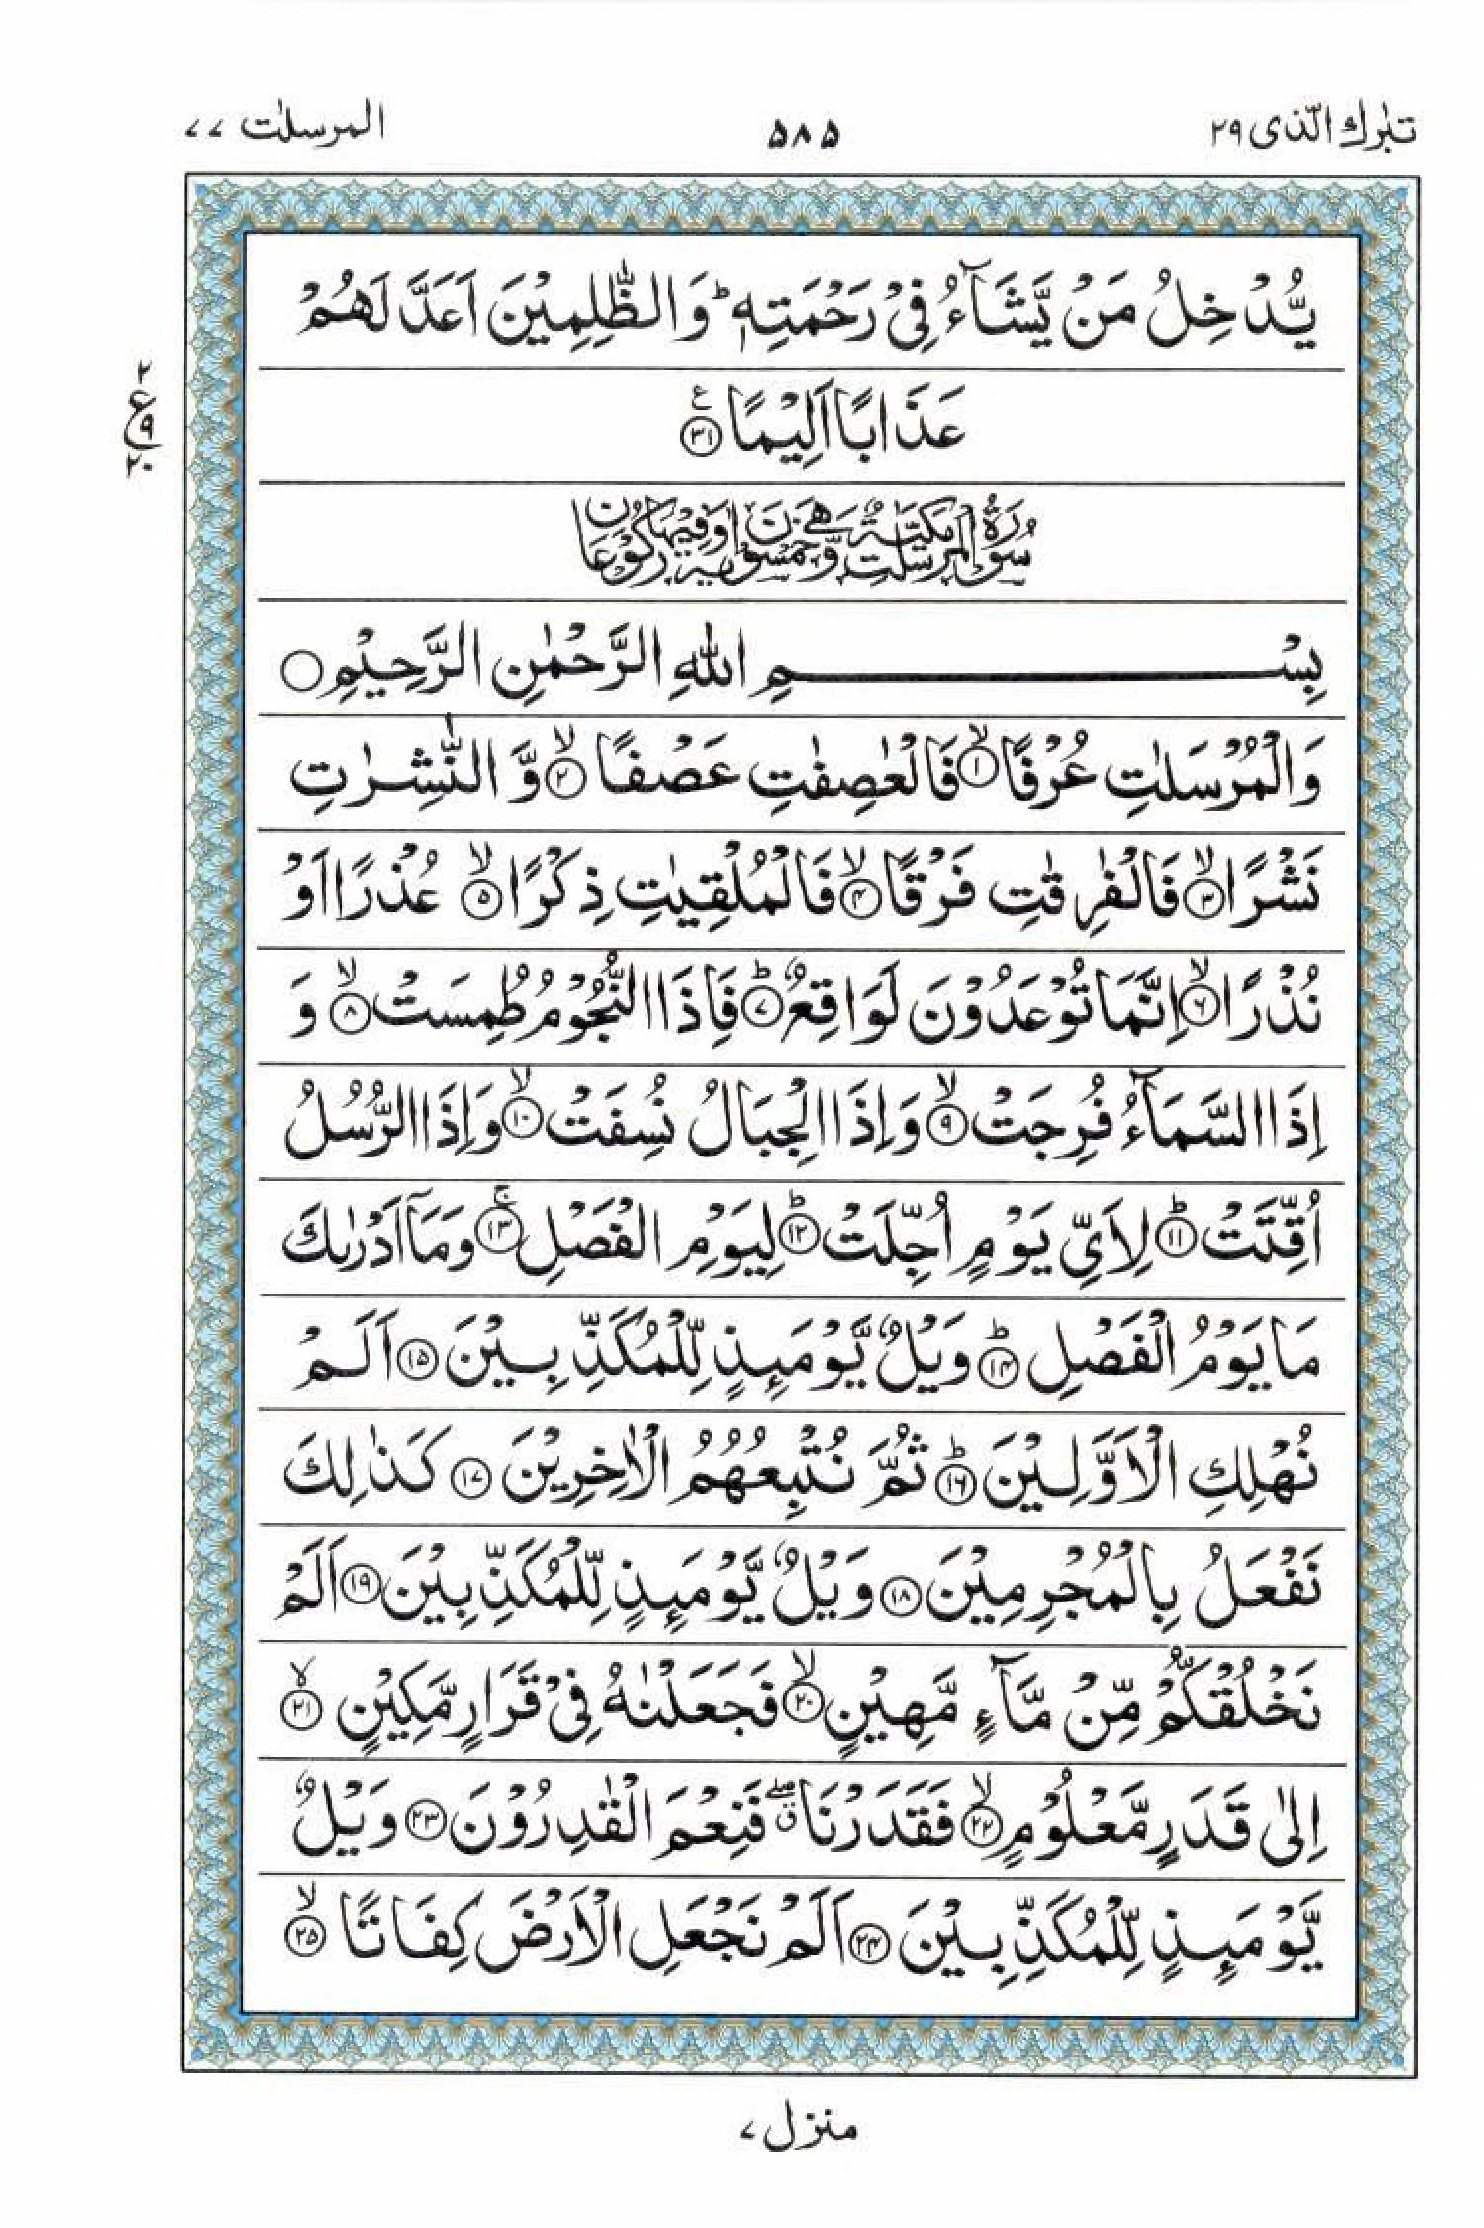 تبٰرك الّذی ۲۹
۵۸۵
المرسلٰت ۷۷
يُّدْخِلُ مَنْ يَّشَآءُ فِيْ رَحْمَتِهٖ ؕ وَالظّٰلِمِيْنَ اَعَدَّ لَهُمْ
عَذَابًا اَلِيْمًا ۳۱ ع
۲
ع
۹
۲۰
سُوْرَةُ الْمُرْسَلٰتِ مَكِّيَّةٌ وَّهِيَ خَمْسُوْنَ اٰيَةً وَّفِيْهَا رُكُوْعَانِ
بِسْمِ اللّٰهِ الرَّحْمٰنِ الرَّحِيْمِ ○
وَالْمُرْسَلٰتِ عُرْفًا ۙ۱ فَالْعٰصِفٰتِ عَصْفًا ۙ۲ وَّ النّٰشِرٰتِ
نَشْرًا ۙ۳ فَالْفٰرِقٰتِ فَرْقًا ۙ۴ فَالْمُلْقِيٰتِ ذِكْرًا ۙ۵ عُذْرًا اَوْ
نُذْرًا ۙ۶ اِنَّمَا تُوْعَدُوْنَ لَوَاقِعٌ ؕ۷ فَاِذَا النُّجُوْمُ طُمِسَتْ ۙ۸ وَ
اِذَا السَّمَآءُ فُرِجَتْ ۙ۹ وَاِذَا الْجِبَالُ نُسِفَتْ ۙ۱۰ وَاِذَا الرُّسُلُ
اُقِّتَتْ ؕ۱۱ لِاَيِّ يَوْمٍ اُجِّلَتْ ؕ۱۲ لِيَوْمِ الْفَصْلِ ۚ۱۳ وَمَاۤ اَدْرٰىكَ
مَا يَوْمُ الْفَصْلِ ؕ۱۴ وَيْلٌ يَّوْمَئِذٍ لِّلْمُكَذِّبِيْنَ ۱۵ اَلَمْ
نُهْلِكِ الْاَوَّلِيْنَ ؕ۱۶ ثُمَّ نُتْبِعُهُمُ الْاٰخِرِيْنَ ۱۷ كَذٰلِكَ
نَفْعَلُ بِالْمُجْرِمِيْنَ ۱۸ وَيْلٌ يَّوْمَئِذٍ لِّلْمُكَذِّبِيْنَ ۱۹ اَلَمْ
نَخْلُقْكُّمْ مِّنْ مَّآءٍ مَّهِيْنٍ ۙ۲۰ فَجَعَلْنٰهُ فِيْ قَرَارٍ مَّكِيْنٍ ۙ۲۱
اِلٰى قَدَرٍ مَّعْلُوْمٍ ۙ۲۲ فَقَدَرْنَا ۖ ق فَنِعْمَ الْقٰدِرُوْنَ ۲۳ وَيْلٌ
يَّوْمَئِذٍ لِّلْمُكَذِّبِيْنَ ۲۴ اَلَمْ نَجْعَلِ الْاَرْضَ كِفَاتًا ۙ۲۵
منزل ۷